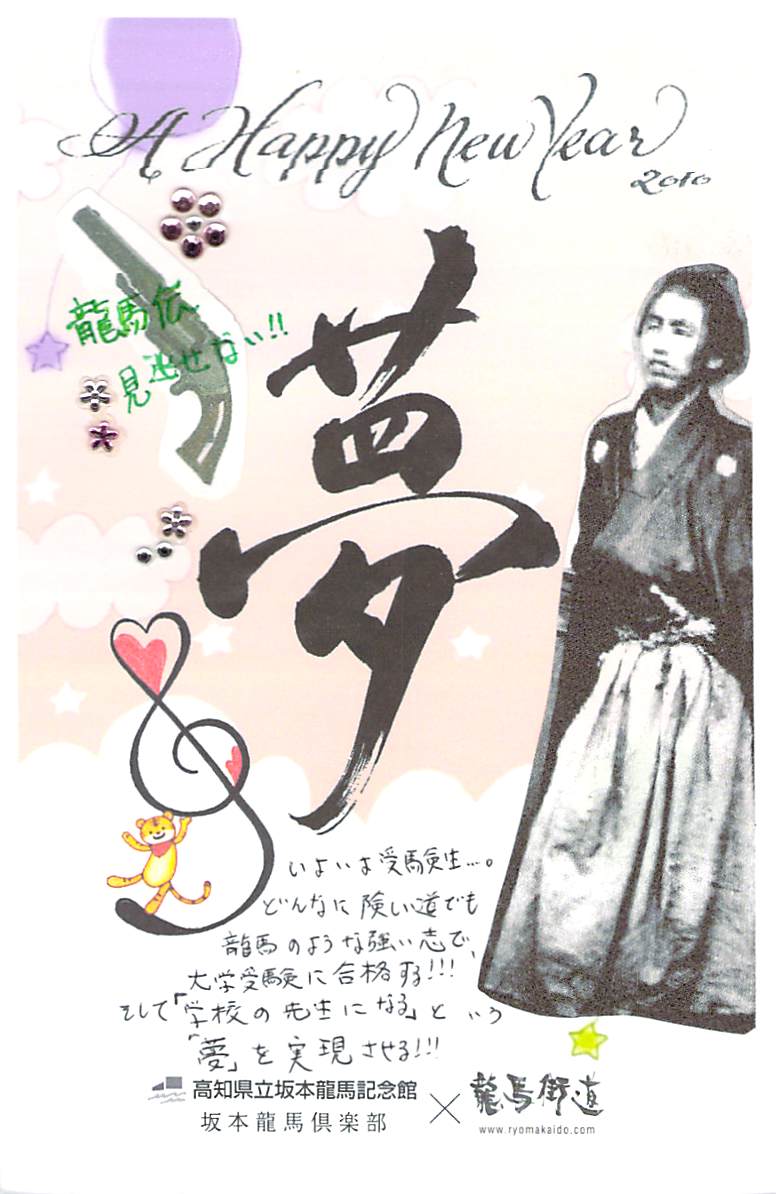 A Happy New Year
2010
龍馬伝
見逃せない!!
夢
いよいよ受験生…。
どんなに険い道でも
龍馬のような強い志で、
大学受験に合格する!!!
そして「学校の先生になる」という
「夢」を実現させる!!!
高知県立坂本龍馬記念館
坂本龍馬倶楽部
×
龍馬街道
www.ryomakaido.com